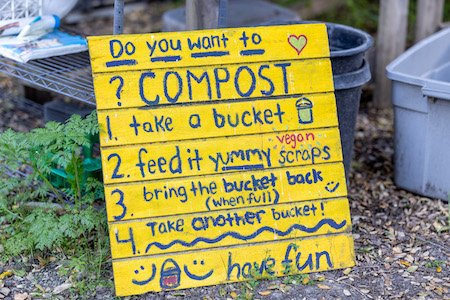 Do you want to
? COMPOST
1. take a bucket
vegan
2. feed it yummy scraps
3. bring the bucket back
(when full)
4. Take another bucket!
have fun